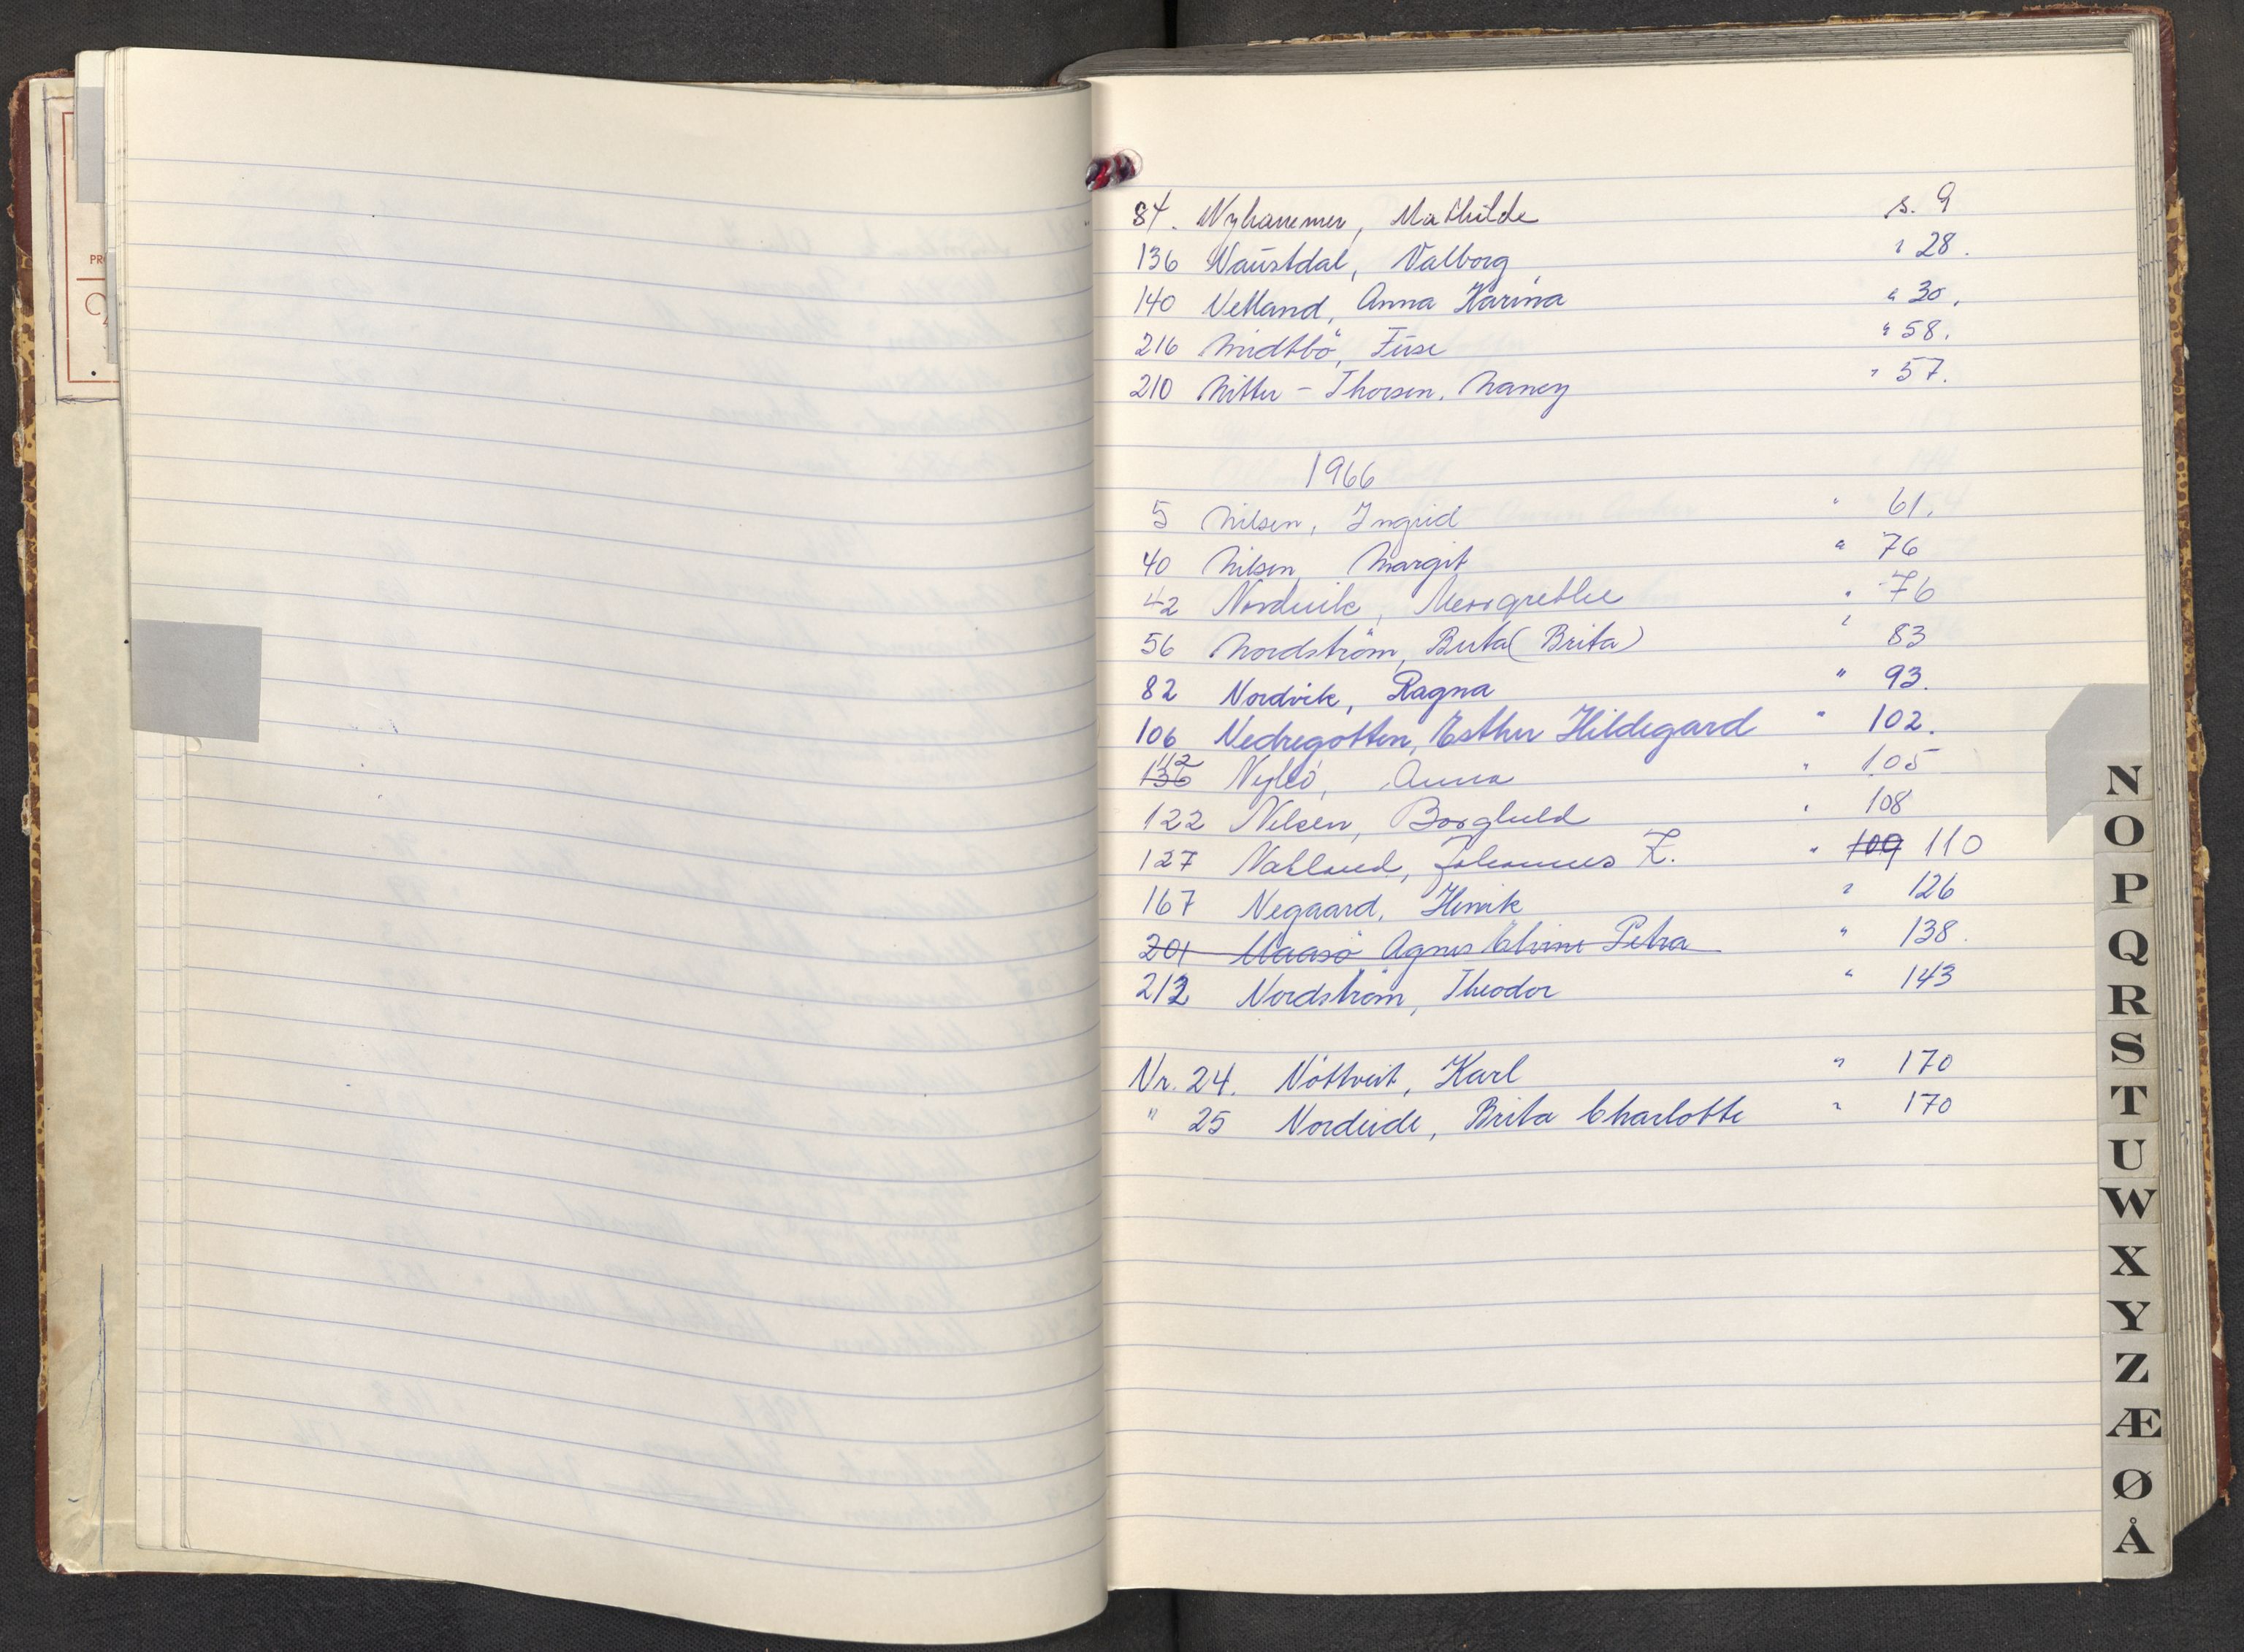 84. Nyhammer, Mathilde s. 9
136 Naustdal, Valborg " 28.
140 Netland, Anna Karina " 30.
216 Midtbö, Tuse " 58.
210 Nitter - Thorsen, Nancy " 57.
1966
5 Nilsen, Ingrid " 61.
40 Nilsen Margit " 76
42 Nordvik, Margrethe " 76
56 Nordström, Berta (Brita) " 83
82 Nordvik, Ragna " 93.
106 Nedregotten, Esther Hildegard " 102.
136 112 Nybö, Anna " 105
122 Nilsen, Borghild " 108
127 Natland, Johannes Z. " 109 110
167 Negaard, Henrik " 126
201 Maasö Agnes Elvine Petra " 138.
212 Nordström, Theodor " 143
Nr. 24. Nöttveit, Karl " 170
" 25 Nordeide, Brita Charlotte " 170
PR
N
O
P
Q
R
S
T
U
W
X
Y
Z
Æ
Ø
Å